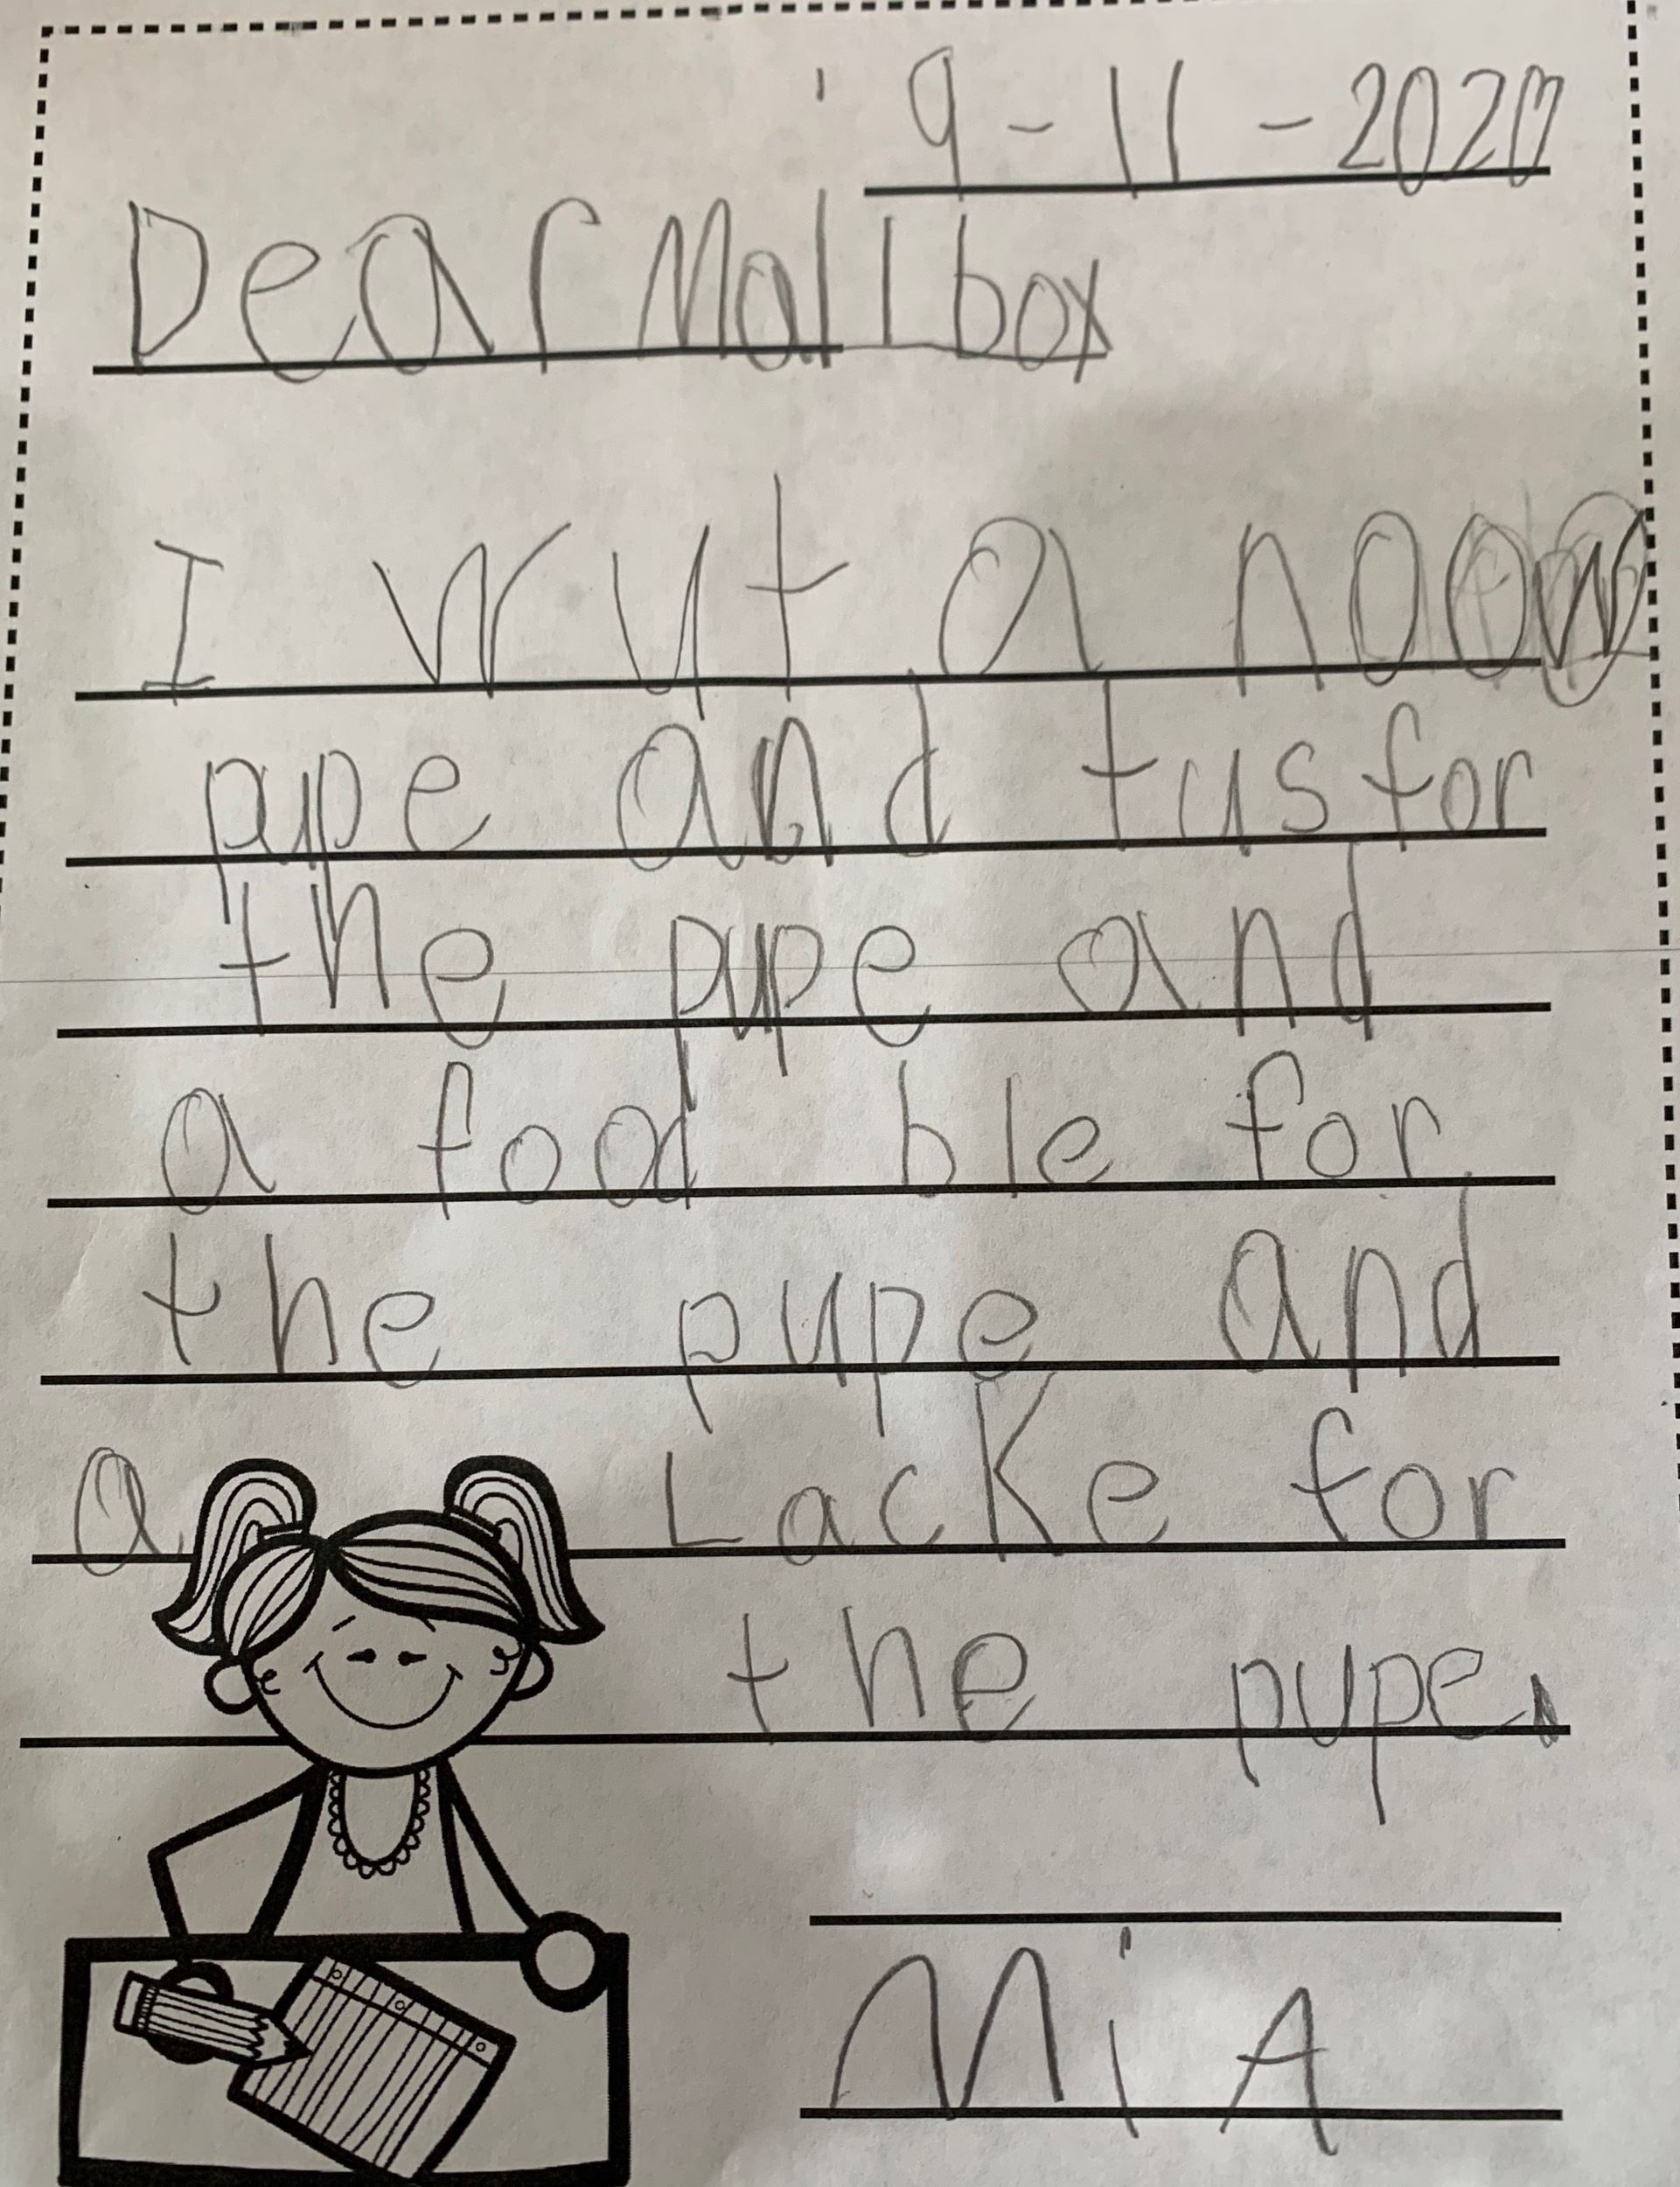 9-11-2020
Dear Mailbox
I wut a noow
pupe and tus for
the pupe and
a food ble for
the pupe and
a Lacke for
the pupe.
MiA